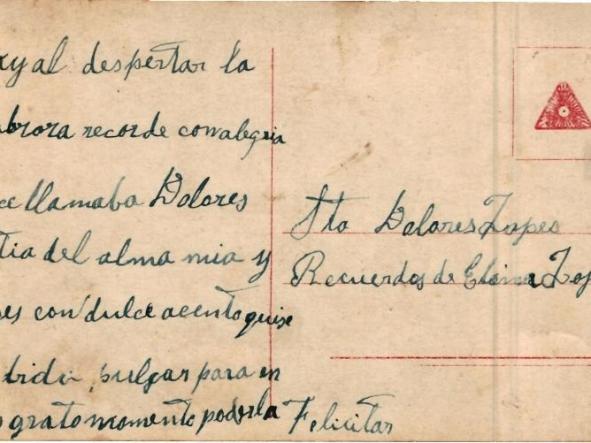 al despertar la
recorde con alegria
llamaba Dolores
tia del alma mia y
es con dulce acento quise
pulgar para en
grato momento poderla Felicitar
Sta Dolores Lopes
Recuerdos de